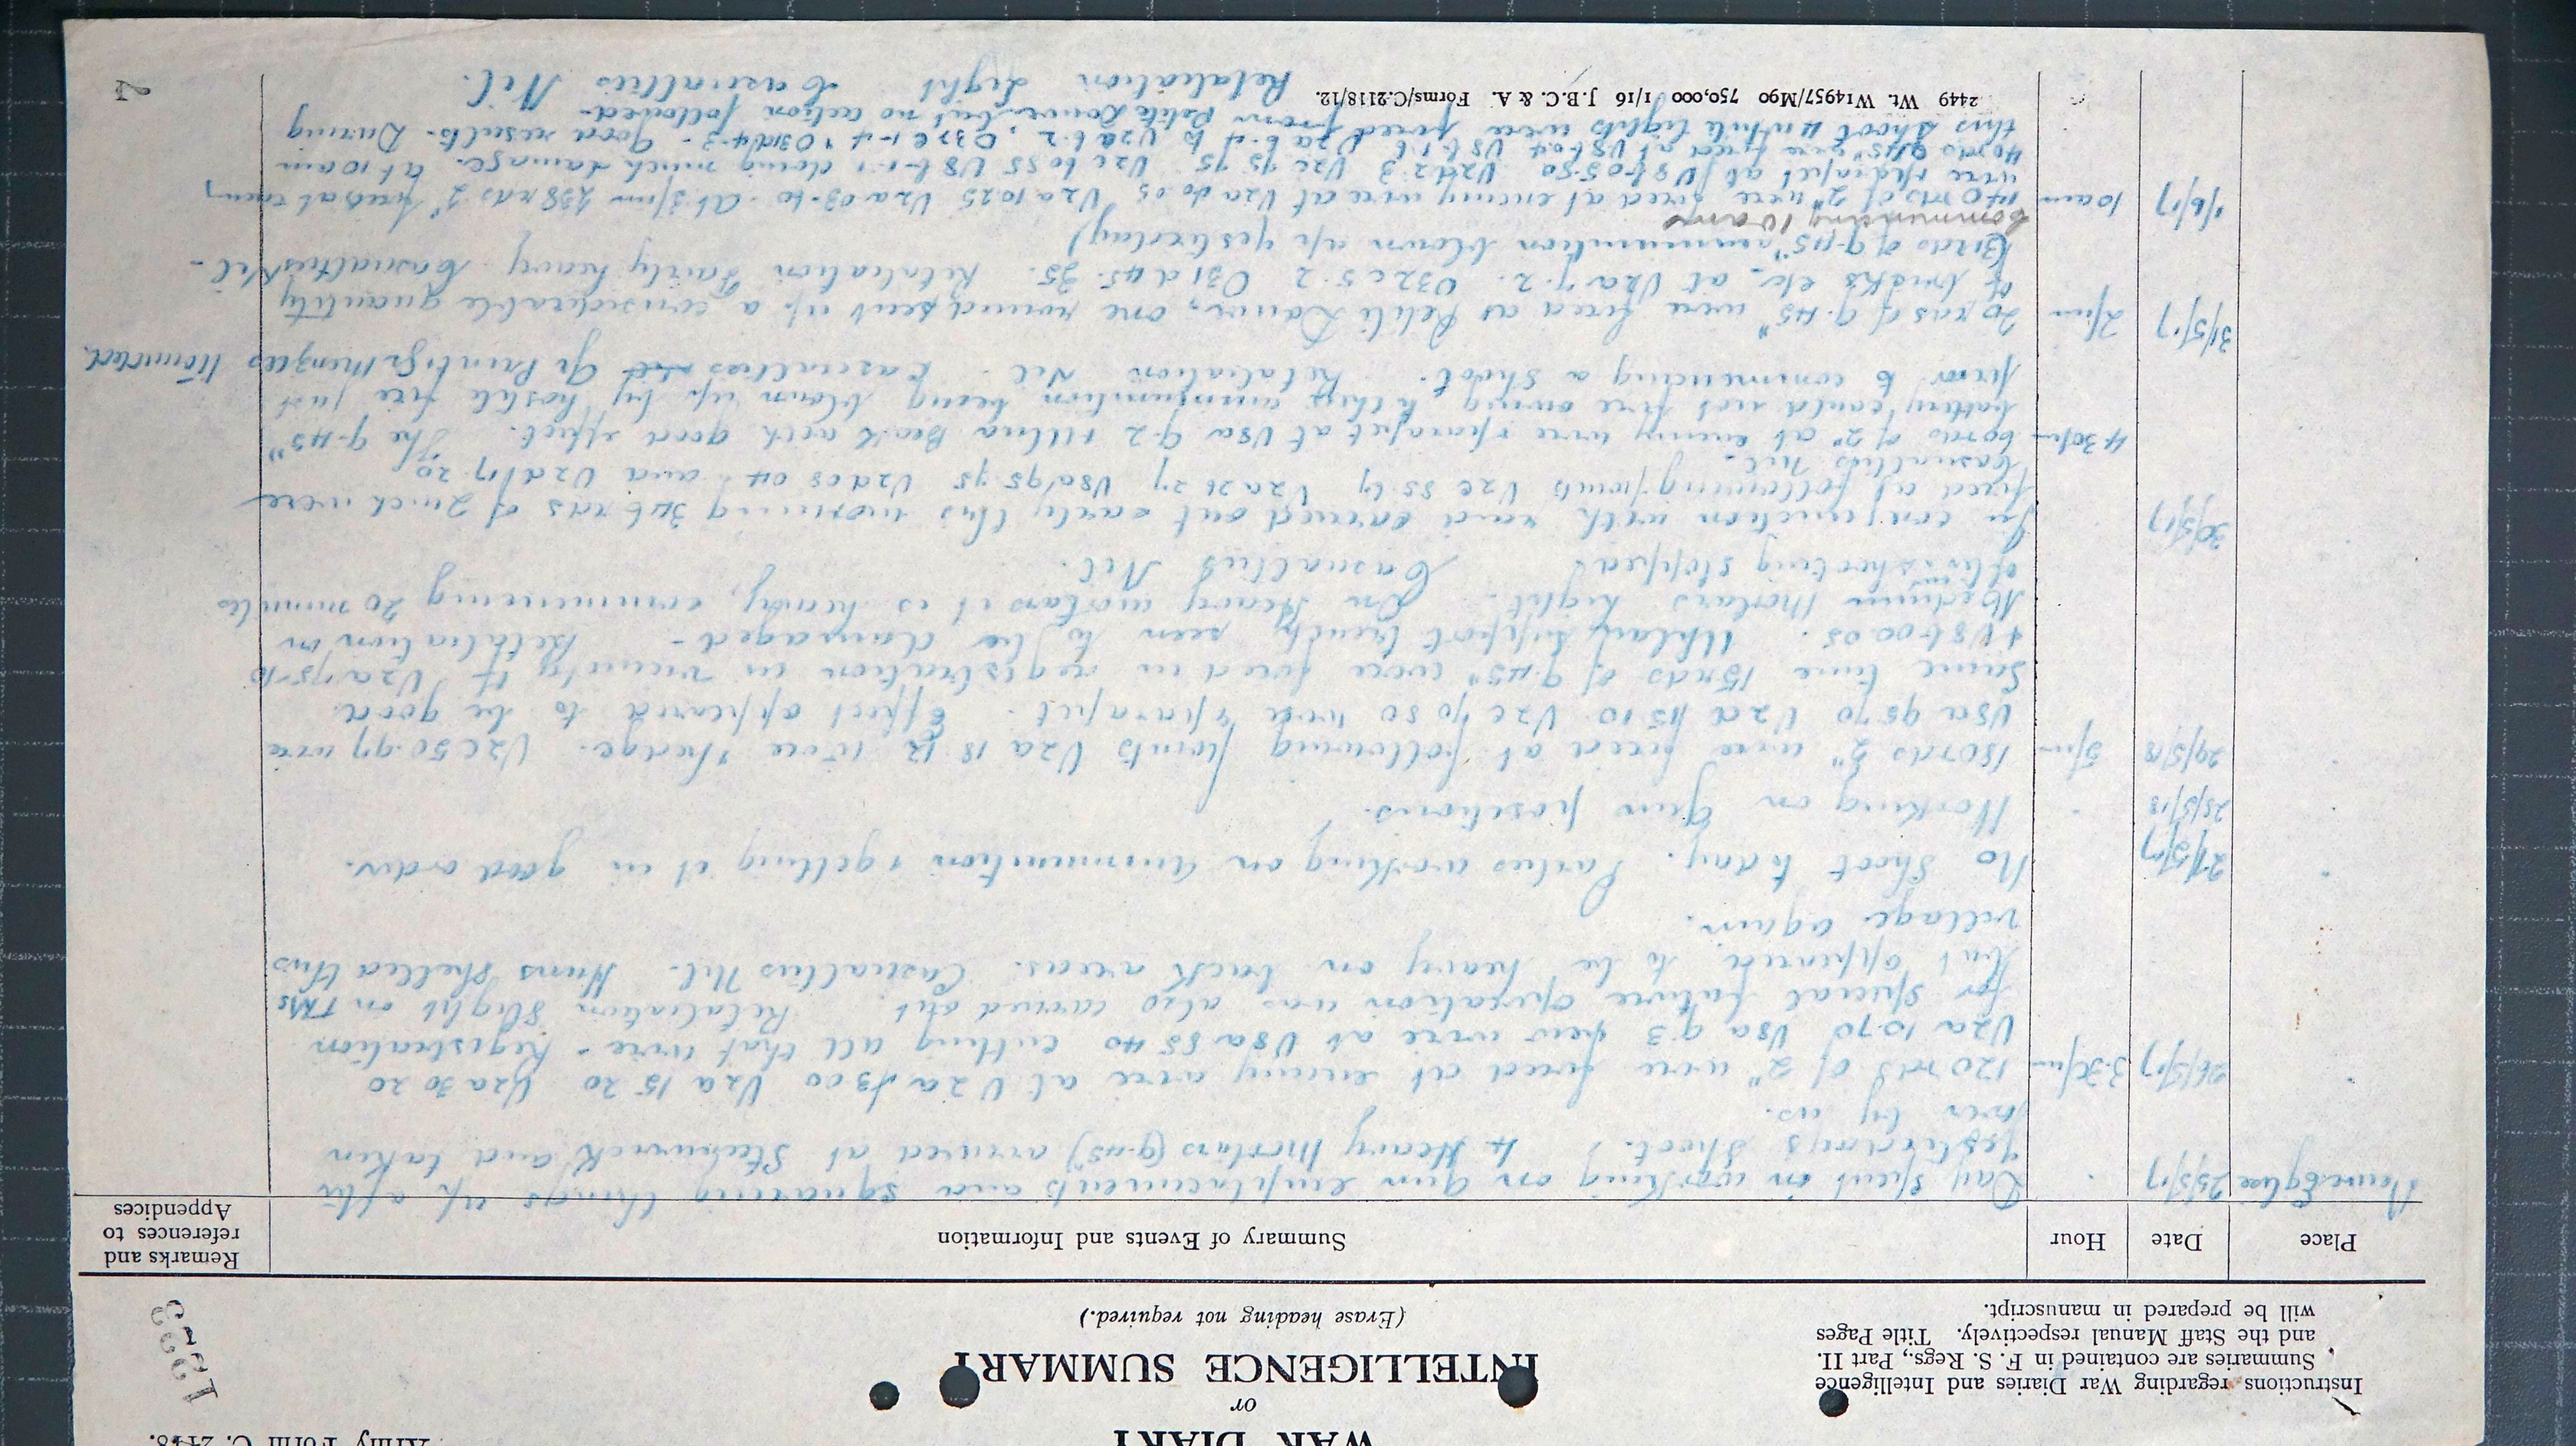 Army Form C. 2118.
WAR DIARY
or
INTELLIGENCE SUMMARY
(Erase heading not required.)
Instructions regarding War Diaries and Intelligence
Summaries are contained in F. S. Regs., Part II.
and the Staff Manual respectively. Title Pages
will be prepared in manuscript.
1233
Place
Date
Hour
Summary of Events and Information
Remarks and
references to
Appendices
Neuve Eglise 25/5/17 Day spent in working on Gun emplacements and squaring things up after
yesterday's shoot. 4 Heavy Mortars (9.45") arrived at Steenwerck and taken
over by us.
26/5/17 3.30pm 120 rds of 2" were fired at enemy wire at U2a 1300 U2a 15 20 U2a 30 20
U2a 10.70 U8a 9.3 new wire at U8a 85 40 cutting all that wire - Registration
for special future operation was also carried out. Retaliation Slight on TMs
but appeared to be heavy on back areas. Casualties Nil. Huns shelled this
village again.
27/5/17 No Shoot today. Parties working on Ammunition & getting it in good order.
28/5/18 Working on Gun positions.
29/5/18 3pm 180 rds 2" were fired at following points U2a 18 12 wire & hedge. U2c 50.97 wire
U8a 95 70 U2d 45 10 U2c 70 80 wire & parapet. Effect appeared to be good.
Same time 15 rds of 9.45" were fired in registration in vicinity of U2a 75.10
& U8b 00 05. Uhlan support trench seen to be damaged - Retaliation on
Medium Mortars light - On Heavy mortars it is heavy, commencing 20 minutes
after shooting stopped Casualties Nil.
30/5/17 In conjunction with raid carried out early this morning 346 rds of 2 inch were
fired at following points U2c 55.67 U2a 26 27 U8a 95 95 U2d 05 04 and U2d 17.20
Casualties Nil -
4.30pm 60 rds of 2" at enemy wire & parapet at U8a 9.2 + Ulna Beak with good effect. The 9.45"
battery could not fire owing to their ammunition being blown up by hostile fire just
prior to commencing a shoot. Retaliation Nil. Casualties Nil Gr Menzies Wounded.
31/5/17 2pm 20 rds of 9.45" were fired at Petite Douve, one round sent up a considerable quantity
of bricks etc - at U2a 7.2. O32c 5.2 O31d 45.35. Retaliation Fairly heavy. Casualties Nil -
(81 rds of 9.45" ammunition blown up yesterday)
Commencing 10 am
1/6/17 10am 140 rds of 2" were fired at enemy wire at U2a 00 05 U2a 10 25 U2a 03.10 - At 3pm 238 rds 2" fired at enemy
wire & parapet at U8b 05.80 U2d 2.3 U2c 95 75 U2c 60 55 U8b 1.1 doing much damage. At 10am
40 rds 9.45" were fired at U8b 0.4 U8b 1.6 U2a 6.4 to U2a 6.2, O32c 1.4 & O31d 4.3 - Good results - During
this shoot 4 white lights were fired from Petite Douve but no action followed -
Retaliation Light Casualties Nil.
2449 Wt. W14957/M90 750,000 1/16 J.B.C. & A. Forms/C.2118/12.
2